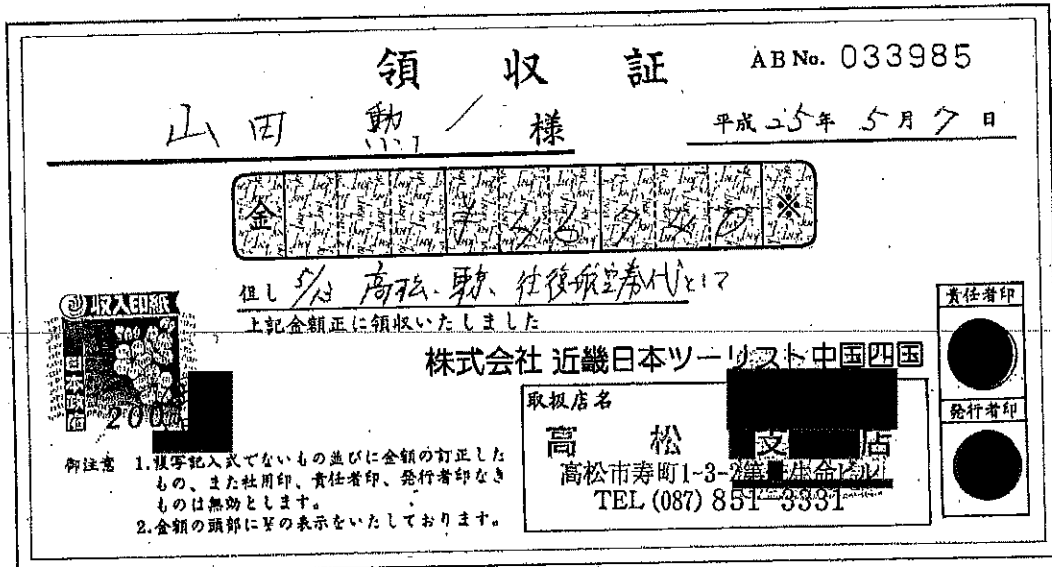 領収証 AB No. 033985
山田 勲 様 平成25年5月7日
金 ¥56740 ※
但し 5/13 高松、東京、往復航空券代として
上記金額正に領収いたしました
収入印紙
日本政府
200
株式会社 近畿日本ツーリスト中国四国
取扱店名
高松 支店
高松市寿町1-3-2 生命ビル
TEL (087) 851-3331
責任者印
発行者印
御注意 1.複写記入式でないもの並びに金額の訂正した
もの、また社用印、責任者印、発行者印なき
ものは無効とします。
2.金額の頭部に¥の表示をいたしております。